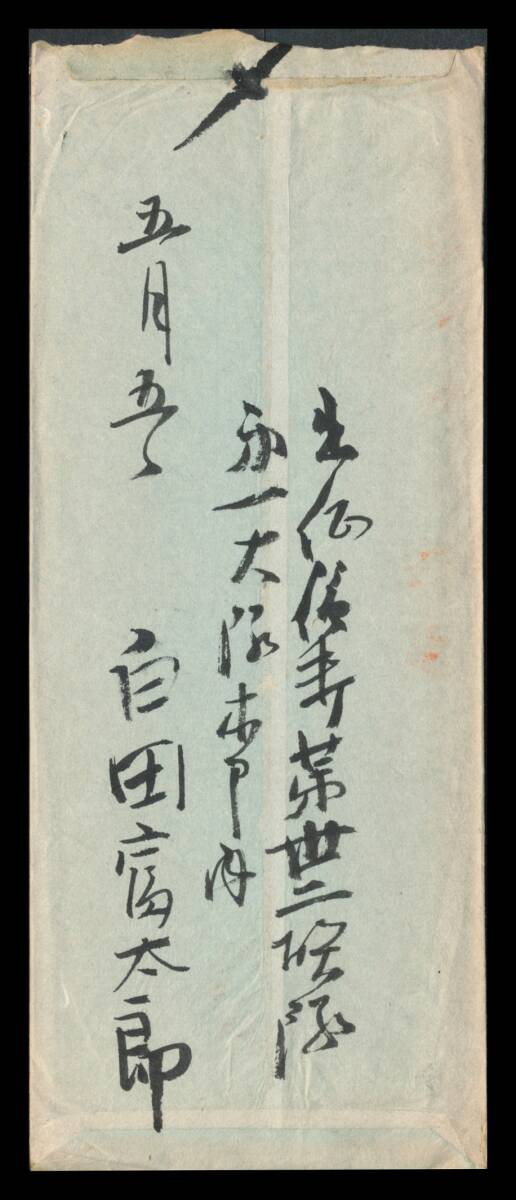 〆
出征
第卅二聯隊
第一大隊本部内
五月五日
白田富太郎